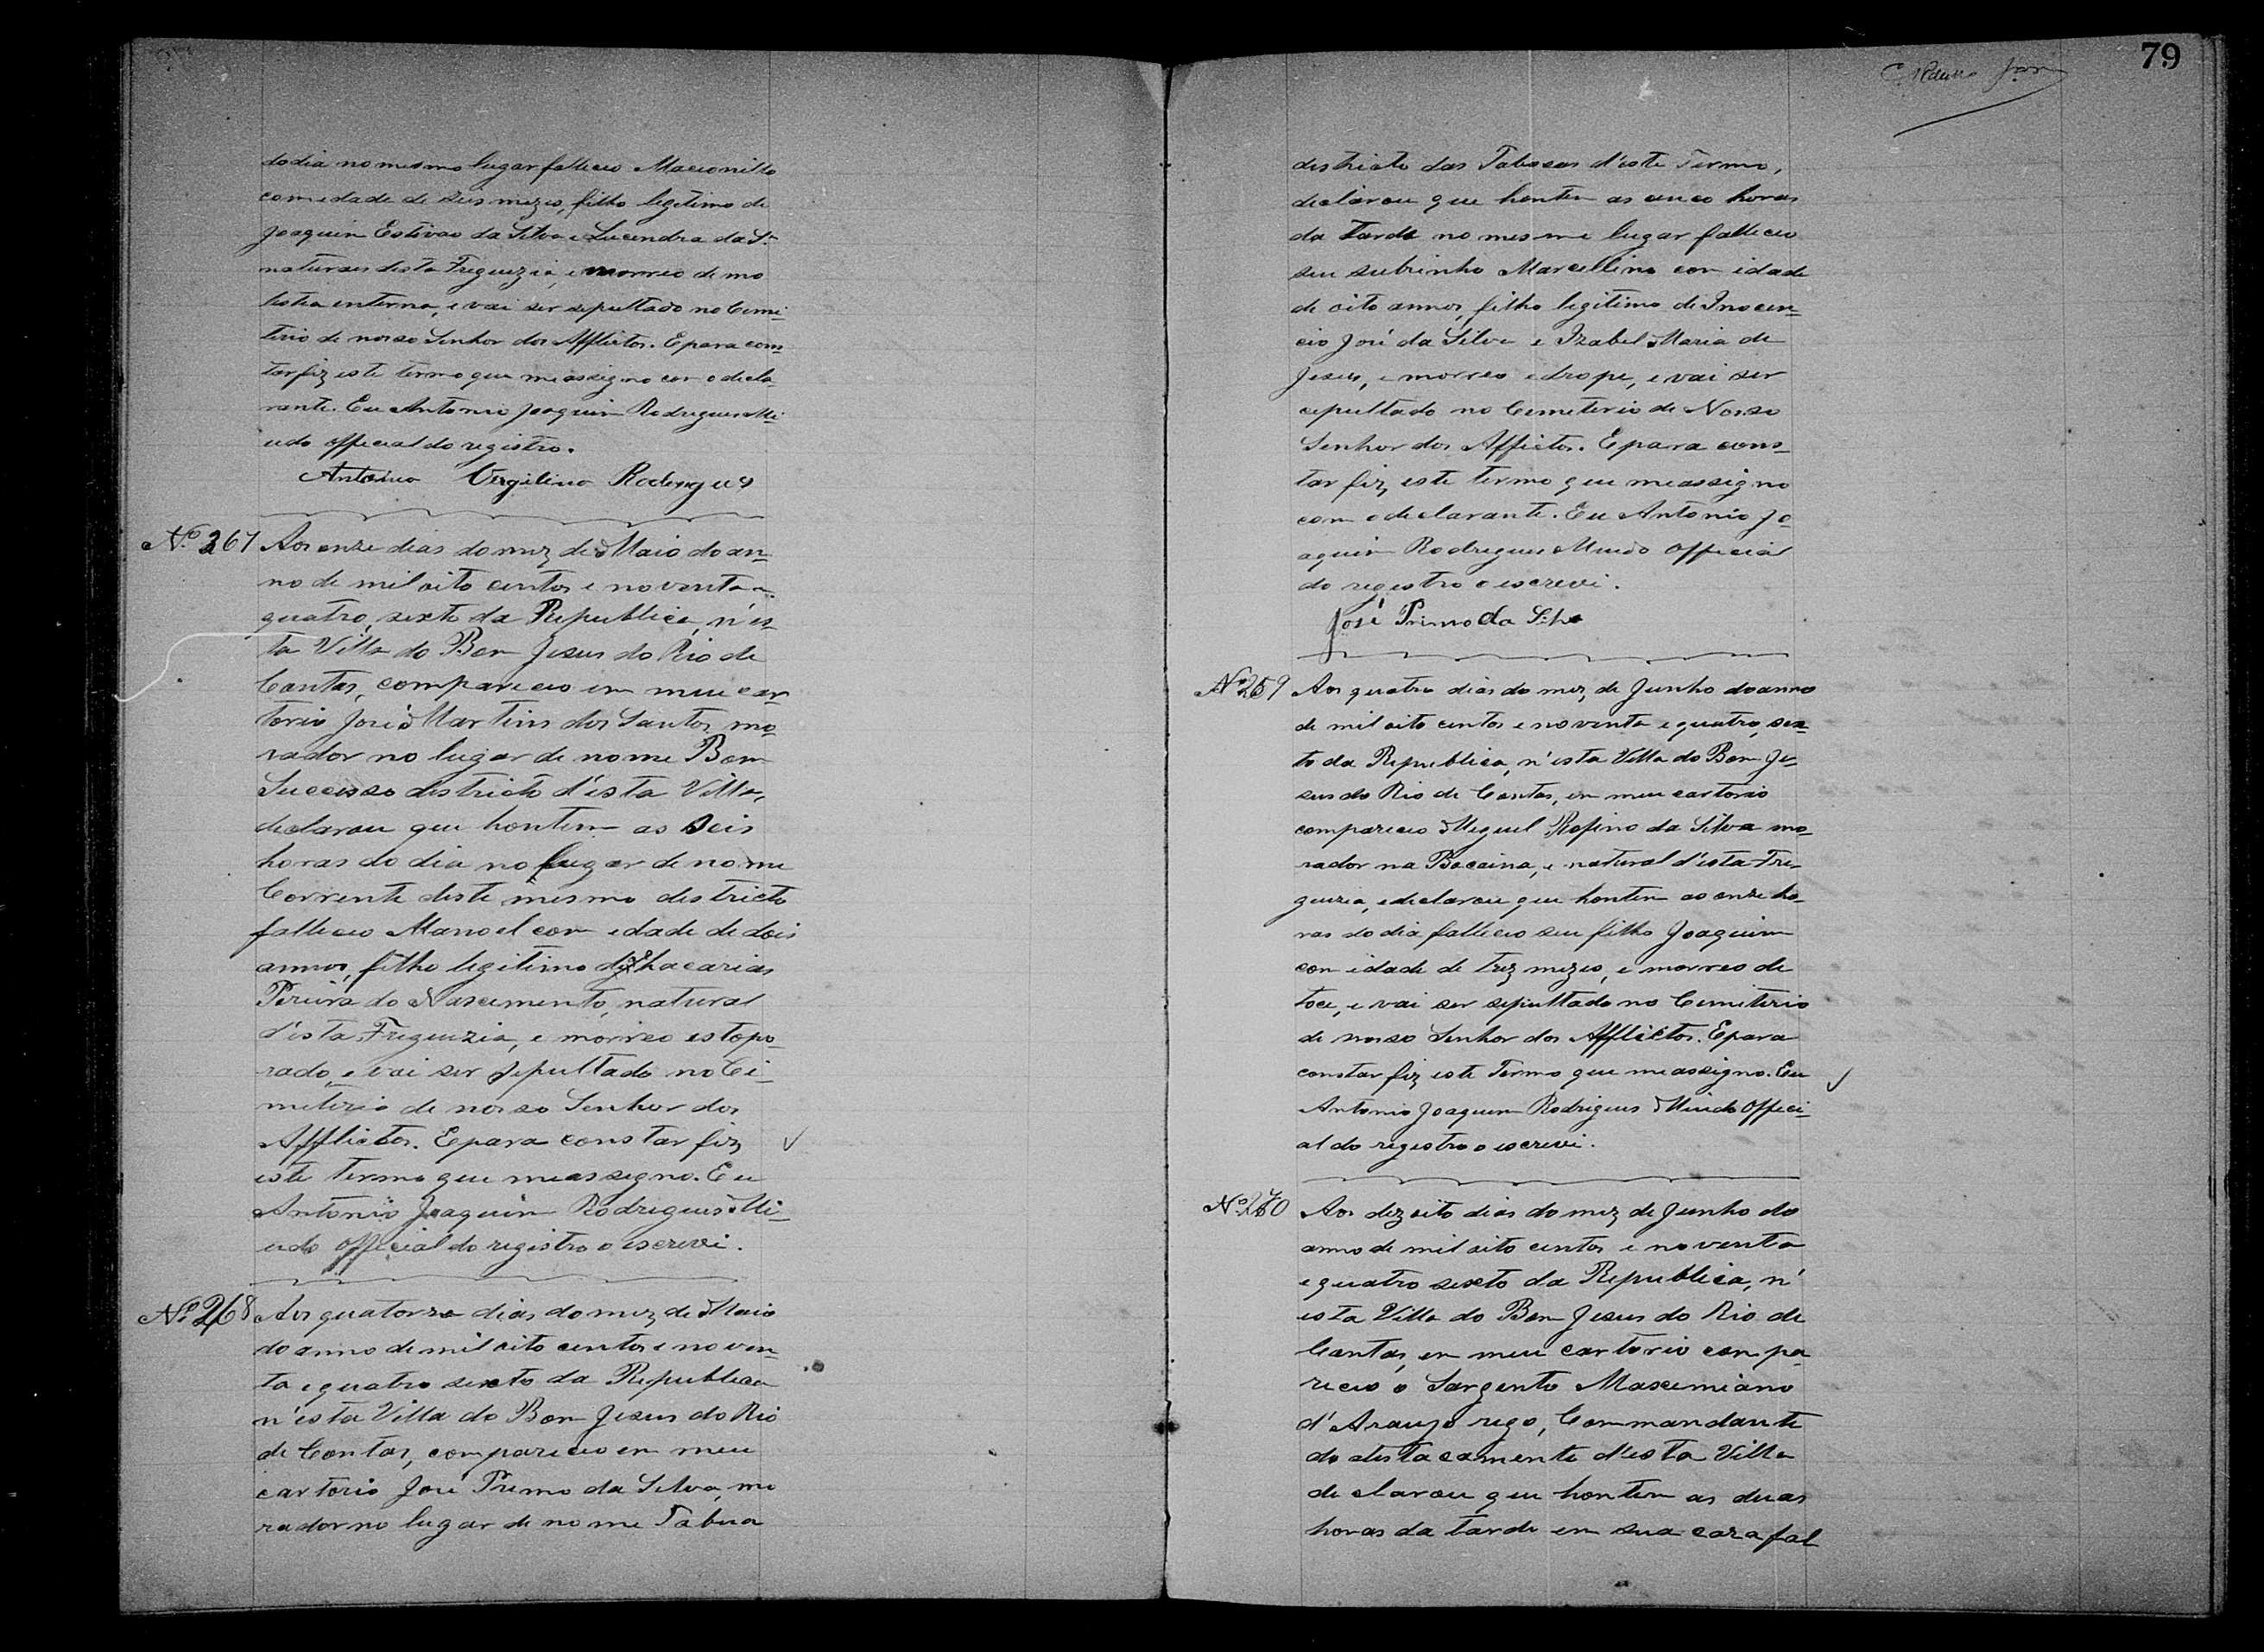 do dia no mesmo lugar falleceo Macionillo
com edade de seis mezes, filho legitimo de
Joaquim Estivão da Silva e Lucendra da S.ª
naturaes desta Freguezia, e morreo de mo
lestia enterna, e vai ser sepultado no Cemi-
terio de nosso Senhor dos Afflictos. E para cons-
tar fiz este termo que me assigno com o decla-
rante. Eu Antonio Joaquim Rodrigues Mi-
udo official do registro.
Antonio Virgilino Rodrigues
Nº 267 Aos onze dias do mez de Maio do an-
no de mil oito centos e noventa e
quatro, sexto da Republica, n'es-
ta Villa do Bom Jesus do Rio de
Contas, compareceo em meu car
torio José Martins dos Santos, mo-
rador no lugar de nome Bom
Successo districto d'esta Villa,
declarou que hontem as seis
horas do dia no lugar de nome
Corrente deste mesmo districto
falleceo Manoel com edade de dois
annos, filho legitimo de Zhacarias
Pereira do Nascimento, natural
d'esta Freguezia, e morreo estopo-
rado, e vai ser sepultado no Ci-
miterio de nosso Senhor dos
Afflictos. E para constar fiz
este termo que me assigno. Eu
Antonio Joaquim Rodrigues Mi-
udo official do registro o escrevi.
Nº 268 Aos quatorze dias do mez de Maio
do anno de mil oito centos e noven-
ta e quatro sexto da Republica
n'esta Villa do Bom Jesus do Rio
de Contas, compareceo em meu
cartorio José Primo da Silva, mo
rador no lugar de nome Tabua
79
districto das Tabocas d'este Termo,
declarou que hontem as cinco horas
da tarde no mesmo lugar falleceo
seu subrinho Marcellino com idade
de oito annos, filho legitimo de Inocen-
cio José da Silva e Izabel Maria de
Jesus, e morreo edrope, e vai ser
cepultado no Cemeterio de Nosso
Senhor dos Affictos. E para cons-
tar fiz este termo que me assigno
com o declarante. Eu Antonio Jo-
aquim Rodrigues Miudo official
do registro o escrevi.
José Primo da Silva
Nº 269 Aos quatro dias do mez de Junho do anno
de mil oito centos e noventa e quatro, sex-
to da Republica, n'esta Villa do Bom Je-
sus do Rio de Contas, em meu cartorio
compareceo Miguel Rofino da Silva mo-
rador na Bocaina, e natural d'esta Fre-
guezia, e declarou que hontem as onze ho-
ras do dia falleceo seu filho Joaquim
com idade de trez mezes, e morreo de
toce, e vai ser sepultado no Cemiterio
de nosso Senhor dos Afflictos. E para
constar fiz este Termo que me assigno. Eu
Antonio Joaquim Rodrigues Miudo Offici-
al do registro o escrevi.
Nº 270 Aos dezoito dias do mez de Junho do
anno de mil oito centos e noventa
e quatro sexto da Republica, n'
esta Villa do Bom Jesus do Rio de
Contas, em meu cartorio compa-
receo o Sargento Maxemiano
d'Araujo rego, Commandante
do destacamento d'esta Villa
declarou que hontem as duas
horas da tarde em sua caza fal